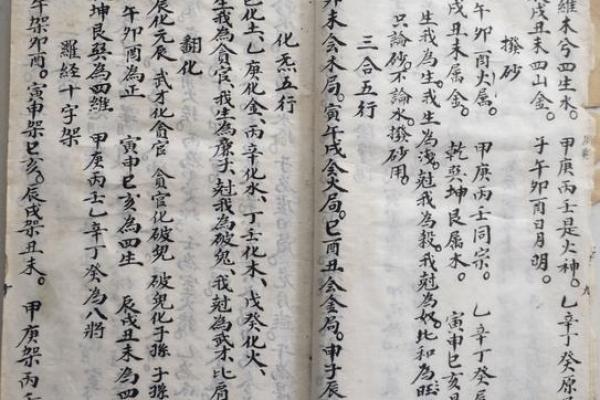 維木兮四生水。甲庚丙壬是火神。乙辛丁癸原
戌丑未四山金。子午卯酉日月明。
撥砂
午卯酉火属。甲庚丙壬同宗。乙辛丁癸
戌丑未属金。乾巽坤艮属水。寅申巳亥
生我為生。我生為洩。尅我為殺。我尅為奴。比和為旺
只論砂。不論水。撥砂用。
三合五行
卯未会木局。寅午戌会火局。巳酉丑会金局。申子辰
化炁五行
己化土、乙庚化金、丙辛化水、丁壬化木、戊癸化火、
生我為貪官、我生為廉子、尅我為破鬼、我尅為武才、比肩
翻化
辰化元辰 武才化貪官 貪官化破鬼 破鬼化子孫 子孫
午卯酉為正 寅申巳亥為四生 辰戌丑未為四
坤艮巽為四維 甲庚丙壬乙辛丁癸為八将
羅经十字架
午架卯酉。寅申架巳亥。辰戌架丑未。甲庚架丙壬